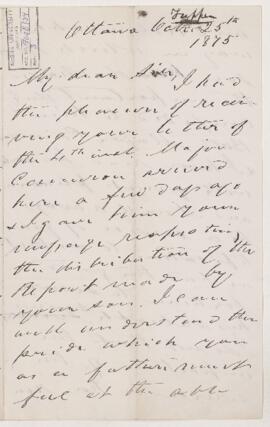 Tupper
Ottawa Oct. 25th
1875
My dear Sir,
I had
the pleasure of recei-
ving your letter of
the 4th inst. Major
Cameron arrived
here a few days ago
& I gave him your
message respecting
the distribution of the
Report made by
your son. I can
well understand the
pride which you
as a father must
feel at the able